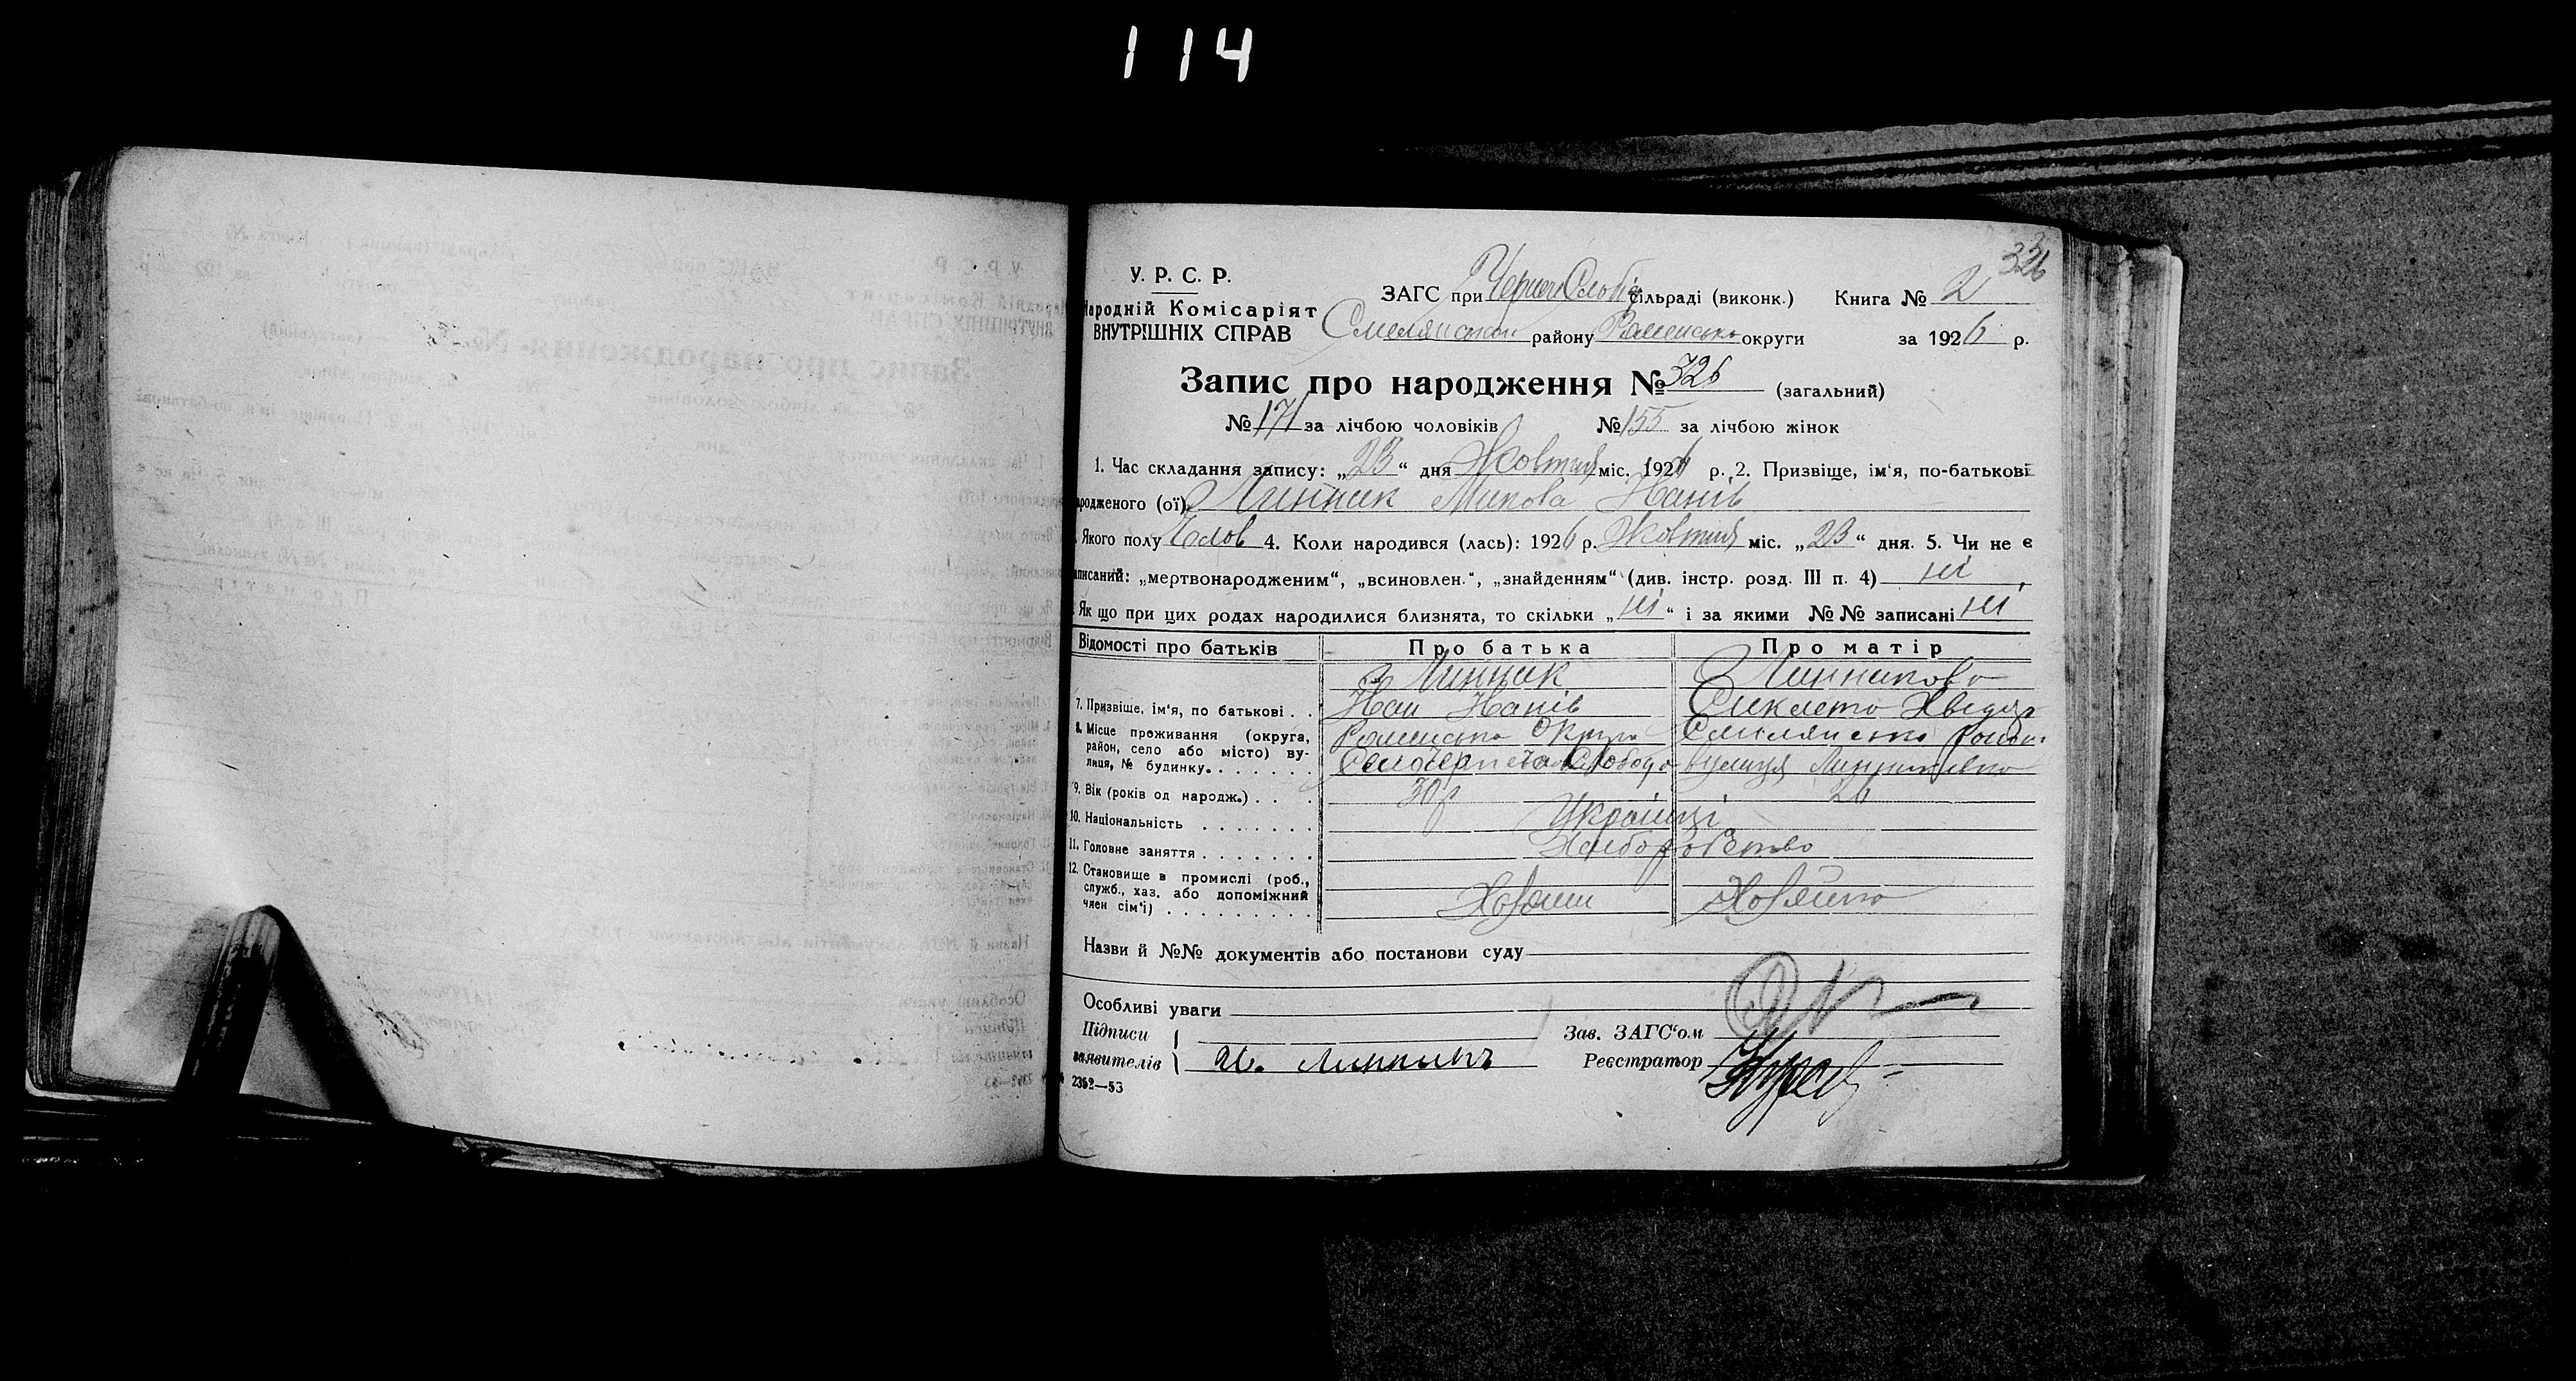 114
326
У. Р. С. Р.
Народній Комісаріят
ВНУТРІШНІХ СПРАВ
ЗАГС при Чернеч Слобід сільраді (виконк.) Книга № 2
Смелянської району Роменсько округи за 1926 р.
Запис про народження № 326 (загальний)
№ 171 за лічбою чоловіків № 155 за лічбою жінок
1. Час складання запису: „23“ дня Жовтня міс. 1926 р. 2. Призвіще, ім‘я, по-батькові
родженого (ої) Линник Микола
Якого полу Чолов 4. Коли народився (лась): 1926 р. Жовтня міс. „23“ дня. 5. Чи не є
аписаний: „мертвонародженим“, „всиновлен.“, „знайденням“ (див. інстр. розд. III п. 4) ні
Як що при цих родах народилися близнята, то скільки „ні“ і за якими №№ записані ні
Відомості про батьків Про батька Про матір
Линник Линникова
7. Призвіще, ім‘я, по батькові . .
8. Місце проживання (округа, Роменська Округа Смілянського
район, село або місто) ву-
лиця, № будинку. Село Чернеча Слобода вулиця
9. Вік (років од народж.) . . . 30р 26
10. Національність Українці
11. Головне заняття Хліборобство
12. Становище в промислі (роб.,
служб., хаз. або допоміжний
член сім‘ї) Хозяин Хозяйка
Назви й №№ документів або постанови суду
Особливі уваги
Підписи
заявителів И. Линникъ
Зав. ЗАГС‘ом
Реєстратор
2352—53